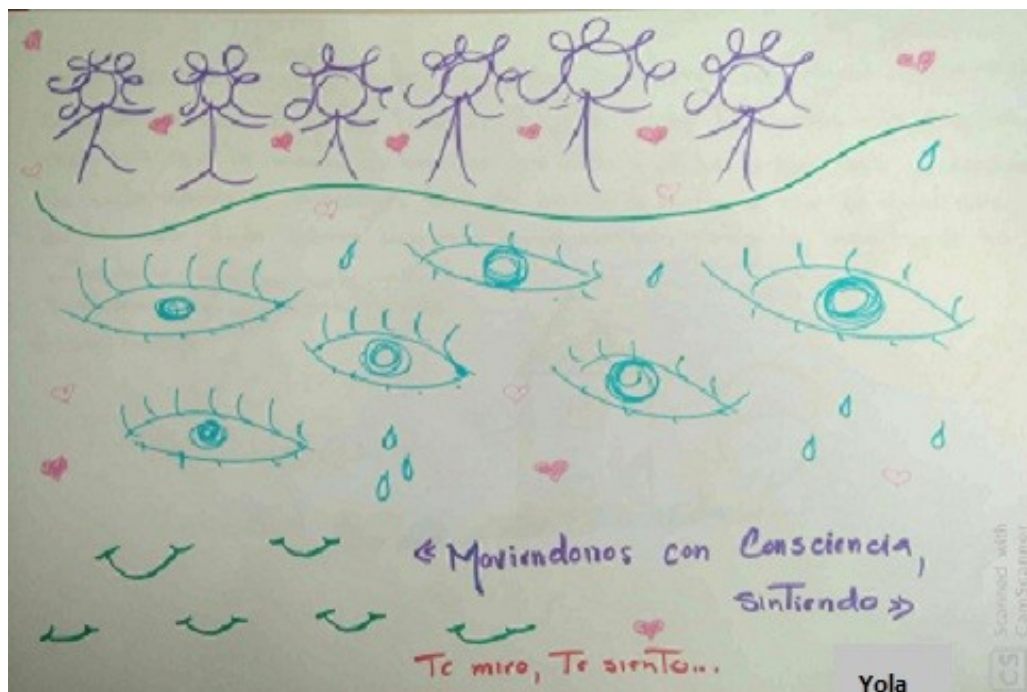 « Moviendonos con Consciencia,
sintiendo »
Te miro, Te siento...
Yola
CS Scanned with
CamScanner